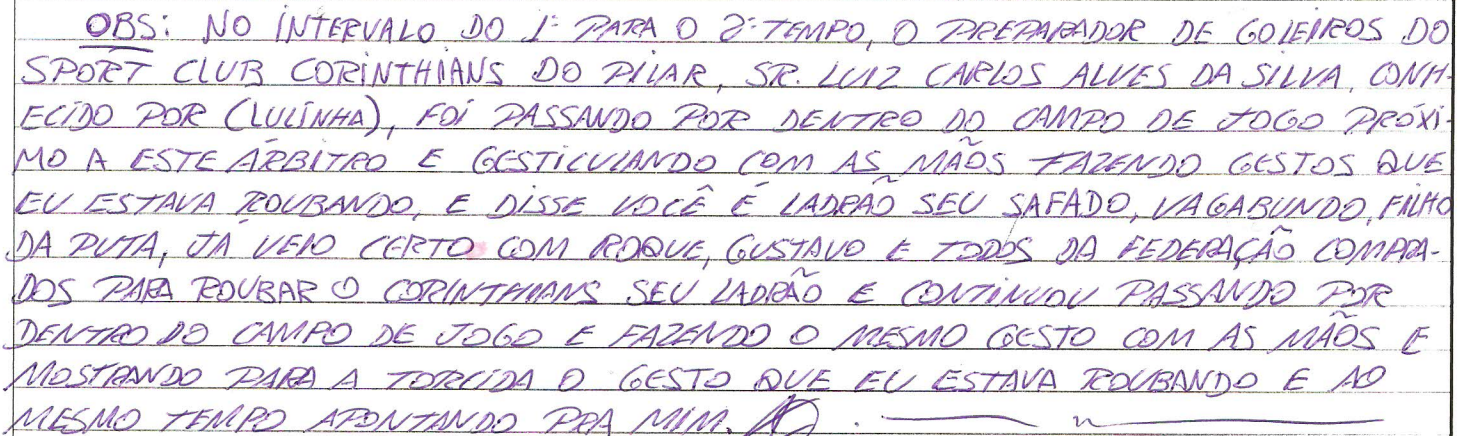 OBS: NO INTERVALO DO 1º PARA O 2º TEMPO, O PREPARADOR DE GOLEIROS DO
SPORT CLUB CORINTHIANS DO PILAR, SR. LUIZ CARLOS ALVES DA SILVA, CONH-
ECIDO POR (LULINHA), FOI PASSANDO POR DENTRO DO CAMPO DE JOGO PRÓXI-
MO A ESTE ÁRBITRO E GESTICULANDO COM AS MÃOS FAZENDO GESTOS QUE
EU ESTAVA ROUBANDO, E DISSE VOCÊ É LADRÃO SEU SAFADO, VAGABUNDO, FILHO
DA PUTA, JÁ VEIO CERTO COM ROQUE, GUSTAVO E TODOS DA FEDERAÇÃO COMPRA-
DOS PARA ROUBAR O CORINTHIANS SEU LADRÃO E CONTINUOU PASSANDO POR
DENTRO DO CAMPO DE JOGO E FAZENDO O MESMO GESTO COM AS MÃOS E
MOSTRANDO PARA A TORCIDA O GESTO QUE EU ESTAVA ROUBANDO E AO
MESMO TEMPO APONTANDO PRA MIM.